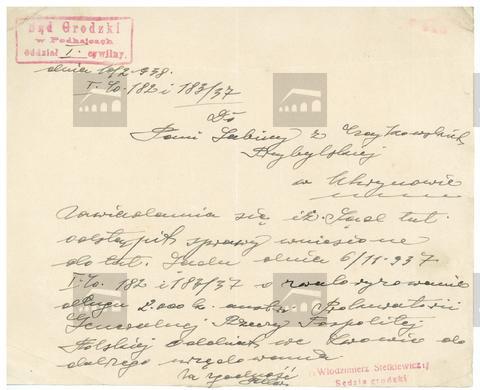 Sąd Grodzki
w Podhajcach
Oddział I. cywilny.
dnia 10/2 938.
I. Co. 182 i 183/37
Do
Pani Sabiny z
Przybylskiej
w Uhrynowie
Zawiadamia się iż Sąd tut.
odstąpił sprawy wniesione
do tut. Sądu dnia 6/11 937
I. Co. 182 i 183/37 o zwaloryzowanie
długu 2.000 k. austr. Prokuratorii
Generalnej Rzeczypospolitej
Polskiej Oddział we Lwowie do
dalszego urzędowania
Włodzimierz Stetkiewicz
Sędzia grodzki
Za zgodność